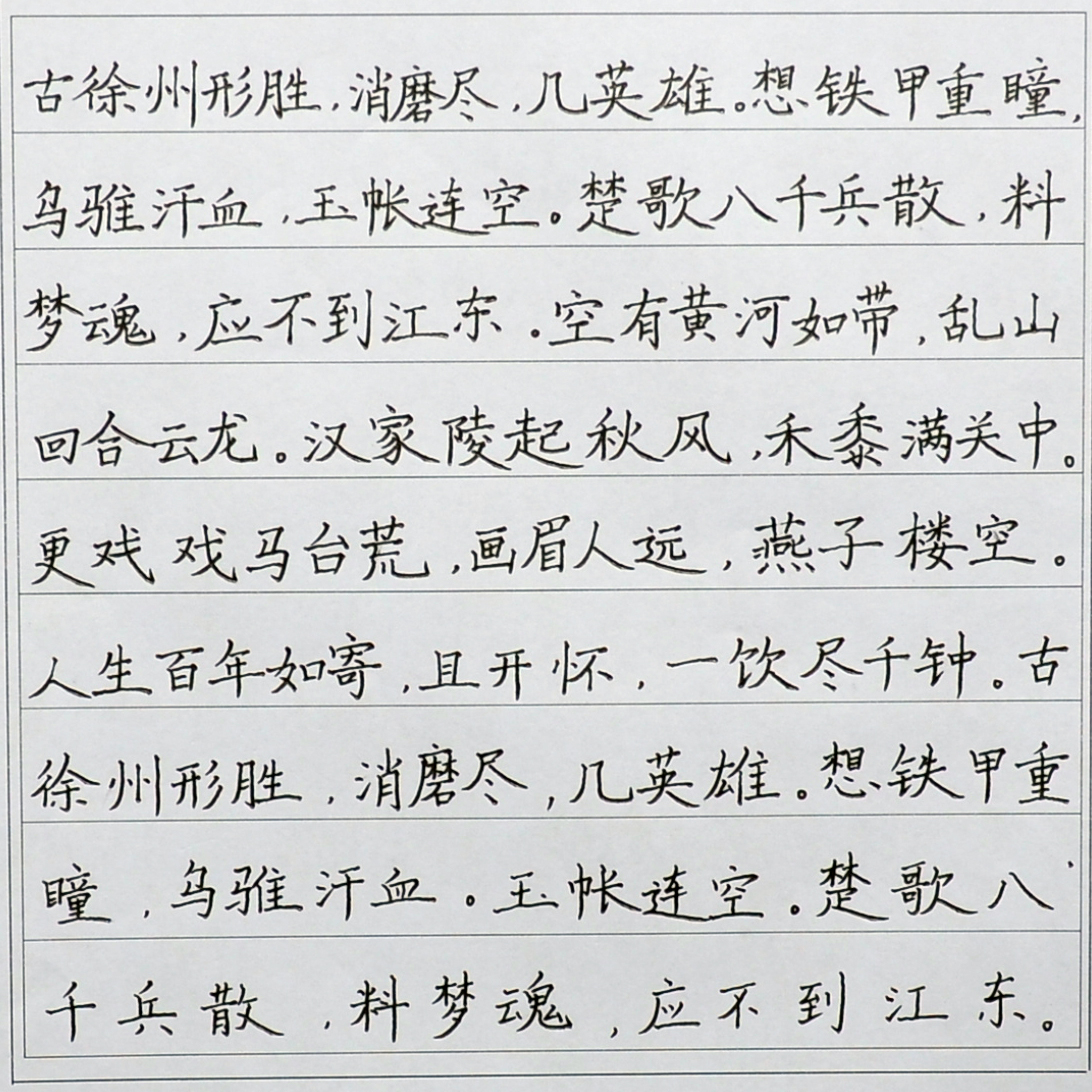 古徐州形胜,消磨尽,几英雄。想铁甲重瞳,
乌骓汗血,玉帐连空。楚歌八千兵散,料
梦魂,应不到江东。空有黄河如带,乱山
回合云龙。汉家陵起秋风,禾黍满关中。
更戏戏马台荒,画眉人远,燕子楼空。
人生百年如寄,且开怀,一饮尽千钟。古
徐州形胜,消磨尽,几英雄。想铁甲重
瞳,乌骓汗血。玉帐连空。楚歌八
千兵散,料梦魂,应不到江东。